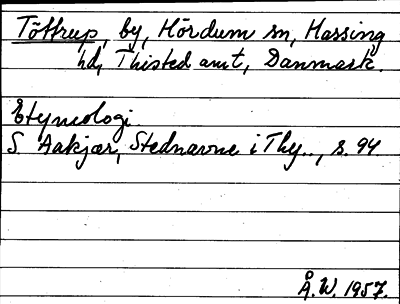 Töttrup, by, Hördum sn, Hassing
hd, Thisted amt, Danmark.
Etymologi.
S. Aakjær, Stednavne i Thy.., s. 94.
Å. W. 1957.